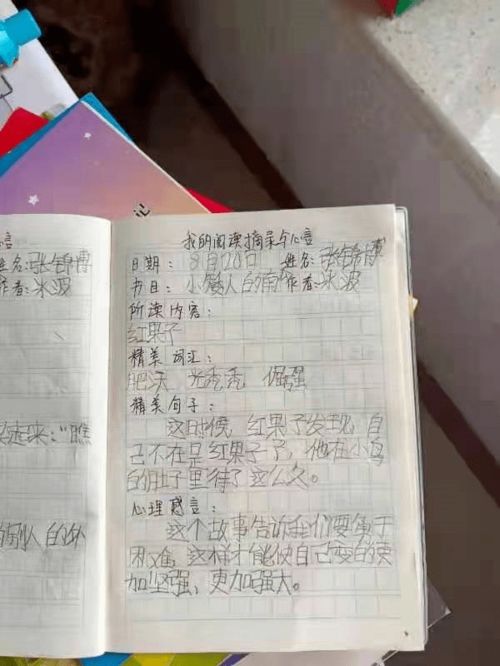 姓名：张锦博
作者：米波
走来：“瞧
的别人的外
我的阅读摘录与心言
日期：8月20日 姓名：张锦博
书目：小矮人的南 作者：米波
所读内容：
红果子
精美词汇：
肥沃 光秃秃 倔强
精美句子：
这时候，红果子发现，自
己不在是红果子了，他在小鸟
的肚子里待了这么久。
心理感言：
这个故事告诉我们要勇于
困难，这样才能使自己变的更
加坚强，更加强大。